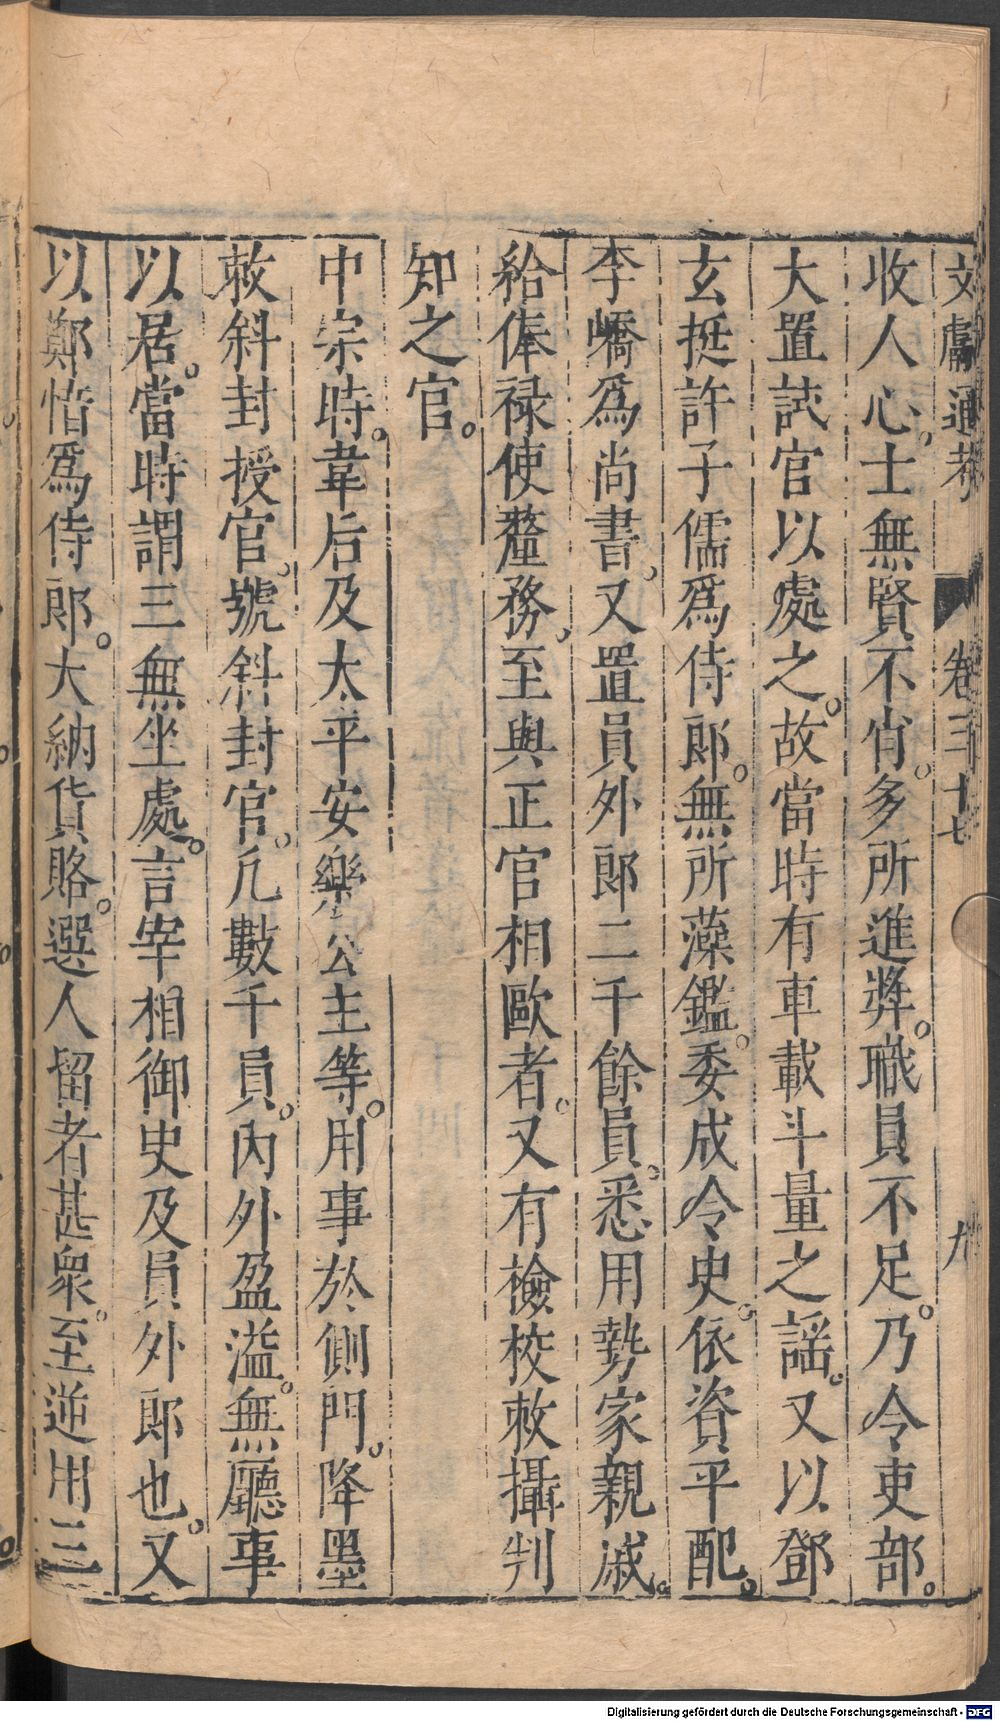 文獻通考 卷三十七 九
收人心士無賢不肖。多所進奬。職員不足。乃令吏部。
大置試官以處之。故當時有車載斗量之謡。又以鄧
玄挺許子儒爲侍郎。無所藻鑑。委成令史。依資平配。
李嶠爲尚書。又置員外郎二千餘員。悉用勢家親戚。
給俸禄使釐務。至與正官相歐者。又有檢校敕攝判
知之官。
中宗時。韋后及太平安樂公主等。用事於側門。降墨
敕斜封授官。號斜封官。凢數千員。內外盈溢。無廳事
以居。當時謂三無坐處。言宰相御史及員外郎也。又
以鄭愔爲侍郎。大納貨賂。選人留者甚衆。至逆用三
Digitalisierung gefördert durch die Deutsche Forschungsgemeinschaft - DFG